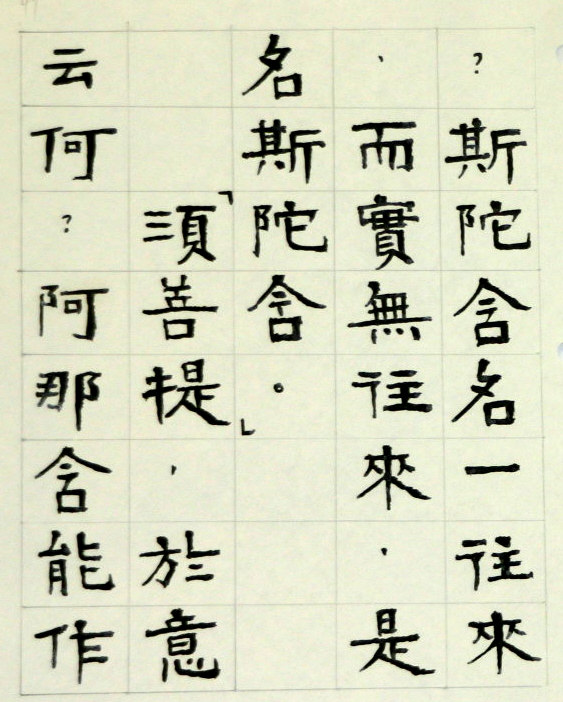 ？斯陀含名一往來
，而實無往來，是
名斯陀含。」
「須菩提，於意
云何？阿那含能作